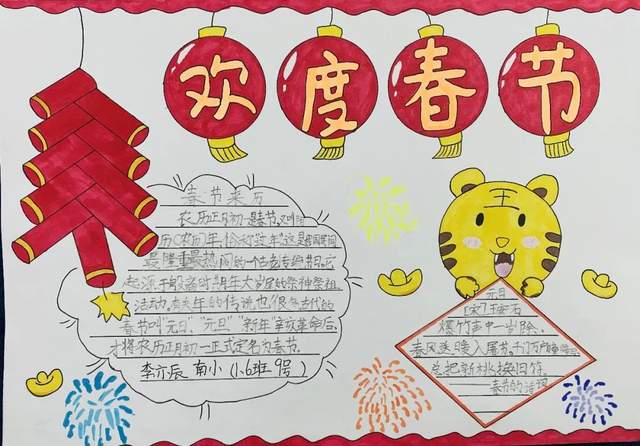 欢度春节
春节来历
农历正月初一是春节,又叫阴
历(农历)年,俗称"过年"。这是我国民间
最隆重最热闹的一个古老传统节日。它
起源于殷商时期年大岁尾的祭神祭祖
活动。有关年的传说也很多。古代的
春节叫"元日""元旦""新年"辛亥革命后,
才将农历正月初一正式定名为春节。
李亦辰 南小 (1.6班 9号)
王
元日
[宋]王安石
爆竹声中一岁除,
春风送暖入屠苏。千门万户
总把新桃换旧符。
春节的诗词